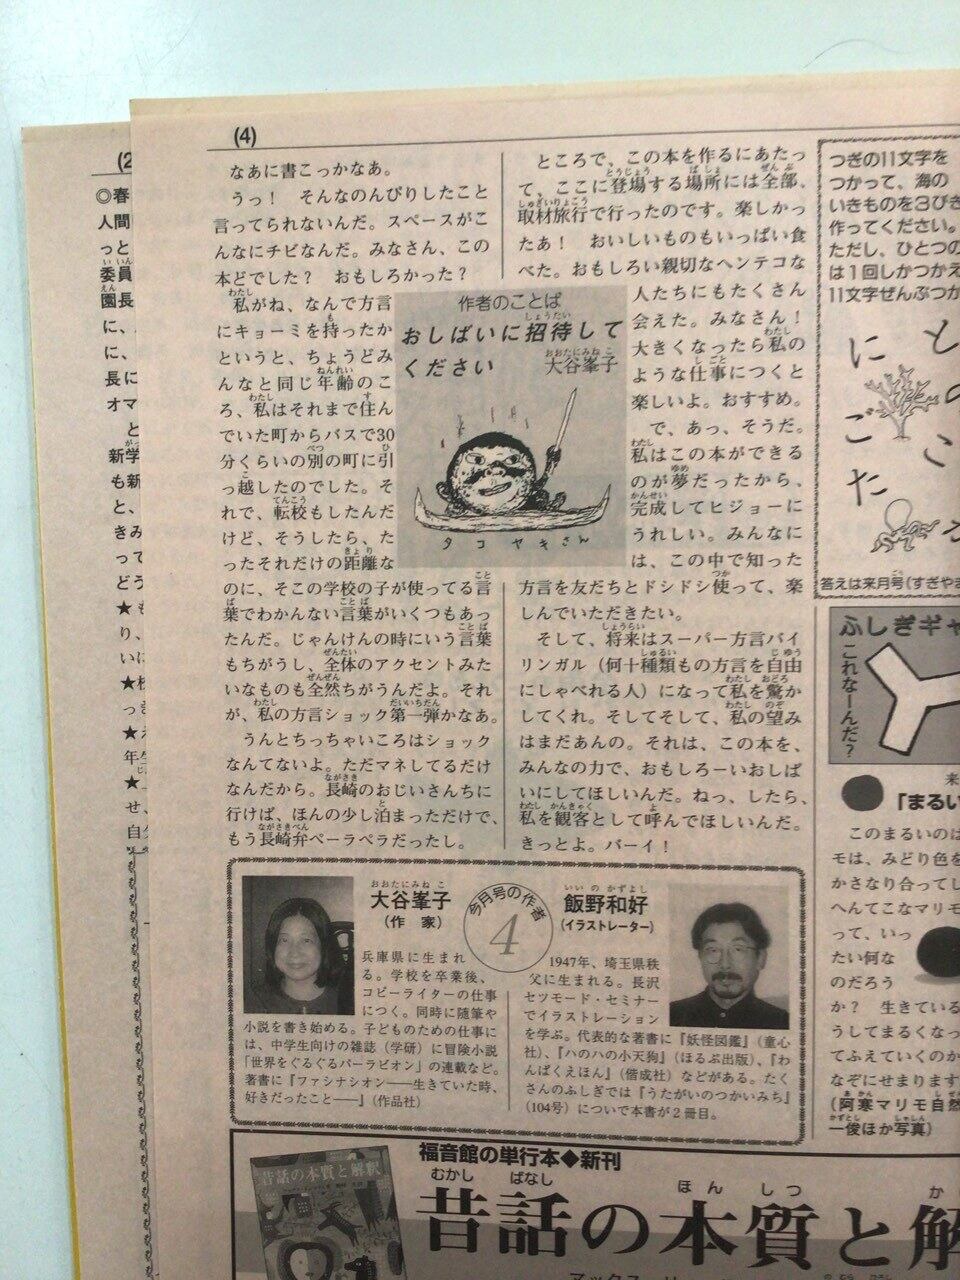 (4)
なあに書こっかなあ。
うっ！　そんなのんびりしたこと
言ってられないんだ。スペースがこ
んなにチビなんだ。みなさん、この
本どでした？　おもしろかった？
私がね、なんで方言
にキョーミを持ったか
というと、ちょうどみ
んなと同じ年齢のこ
ろ、私はそれまで住ん
でいた町からバスで30
分くらいの別の町に引
っ越したのでした。そ
れで、転校もしたんだ
けど、そうしたら、た
ったそれだけの距離な
のに、そこの学校の子が使ってる言
葉でわかんない言葉がいくつもあっ
たんだ。じゃんけんの時にいう言葉
もちがうし、全体のアクセントみた
いなものも全然ちがうんだよ。それ
が、私の方言ショック第一弾かなあ。
うんとちっちゃいころはショック
なんてないよ。ただマネしてるだけ
なんだから。長崎のおじいさんちに
行けば、ほんの少し泊まっただけで、
もう長崎弁ペーラペラだったし。
作者のことば
おしばいに招待して
ください
大谷峯子
おおたにみねこ
タコヤキさん
ところで、この本を作るにあたっ
て、ここに登場する場所には全部、
取材旅行で行ったのです。楽しかっ
たあ！　おいしいものもいっぱい食
べた。おもしろい親切なヘンテコな
人たちにもたくさん
会えた。みなさん！
大きくなったら私の
ような仕事につくと
楽しいよ。おすすめ。
で、あっ、そうだ。
私はこの本ができる
のが夢だったから、
完成してヒジョーに
うれしい。みんなに
は、この中で知った
方言を友だちとドシドシ使って、楽
しんでいただきたい。
そして、将来はスーパー方言バイ
リンガル（何十種類もの方言を自由
にしゃべれる人）になって私を驚か
してくれ。そしてそして、私の望み
はまだあんの。それは、この本を、
みんなの力で、おもしろーいおしば
いにしてほしいんだ。ねっ、したら、
私を観客として呼んでほしいんだ。
きっとよ。バーイ！
今月号の作者
4
おおたにみねこ
大谷峯子
（作　家）
兵庫県に生まれ
る。学校を卒業後、
コピーライターの仕事
につく。同時に随筆や
小説を書き始める。子どものための仕事に
は、中学生向けの雑誌（学研）に冒険小説
「世界をぐるぐるパーラビオン」の連載など。
著書に『ファシナシオン――生きていた時、
好きだったこと――』（作品社）
いいのかずよし
飯野和好
（イラストレーター）
1947年、埼玉県秩
父に生まれる。長沢
セツモード・セミナー
でイラストレーション
を学ぶ。代表的な著書に『妖怪図鑑』（童心
社）、『ハのハの小天狗』（ほるぷ出版）、『わ
んぱくえほん』（偕成社）などがある。たく
さんのふしぎでは『うたがいのつかいみち』
（104号）について本書が２冊目。
つぎの11文字を
つかって、海の
いきものを３びき
作ってください。
ただし、ひとつの
は１回しかつかえ
11文字ぜんぶつか
にごた
とのこ
答えは来月号（すぎやま
ふしぎギャ
これなーんだ？
「まるい
このまるいのは
モは、みどり色を
かさなり合ってし
へんてこなマリモ
って、いっ
たい何な
のだろう
か？　生きている
うしてまるくなっ
てふえていくのか
なぞにせまります
（阿寒マリモ自然
一俊ほか写真）
福音館の単行本◆新刊
むかし　ばなし　ほん　しつ　か
昔話の本質と解
昔話の本質と解釈
◎春
人間
っと
委員
園長
に、
に、
長に
オマ
と
新学
も新
と、
きみ
って
どう